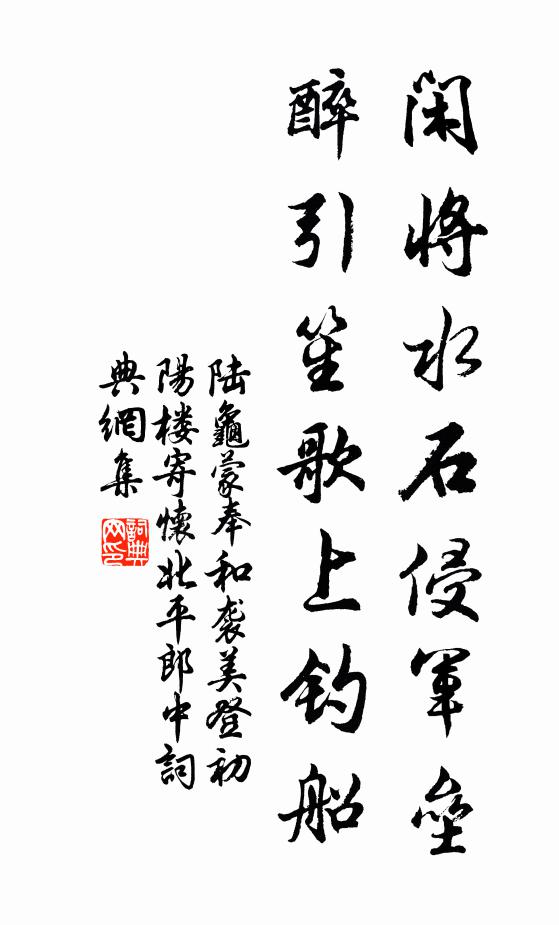 閑將水石侵軍壘
醉引笙歌上釣船
陆龜蒙奉和袭美登初
陽楼寄懷北平郎中詞
典網集
詞典网印